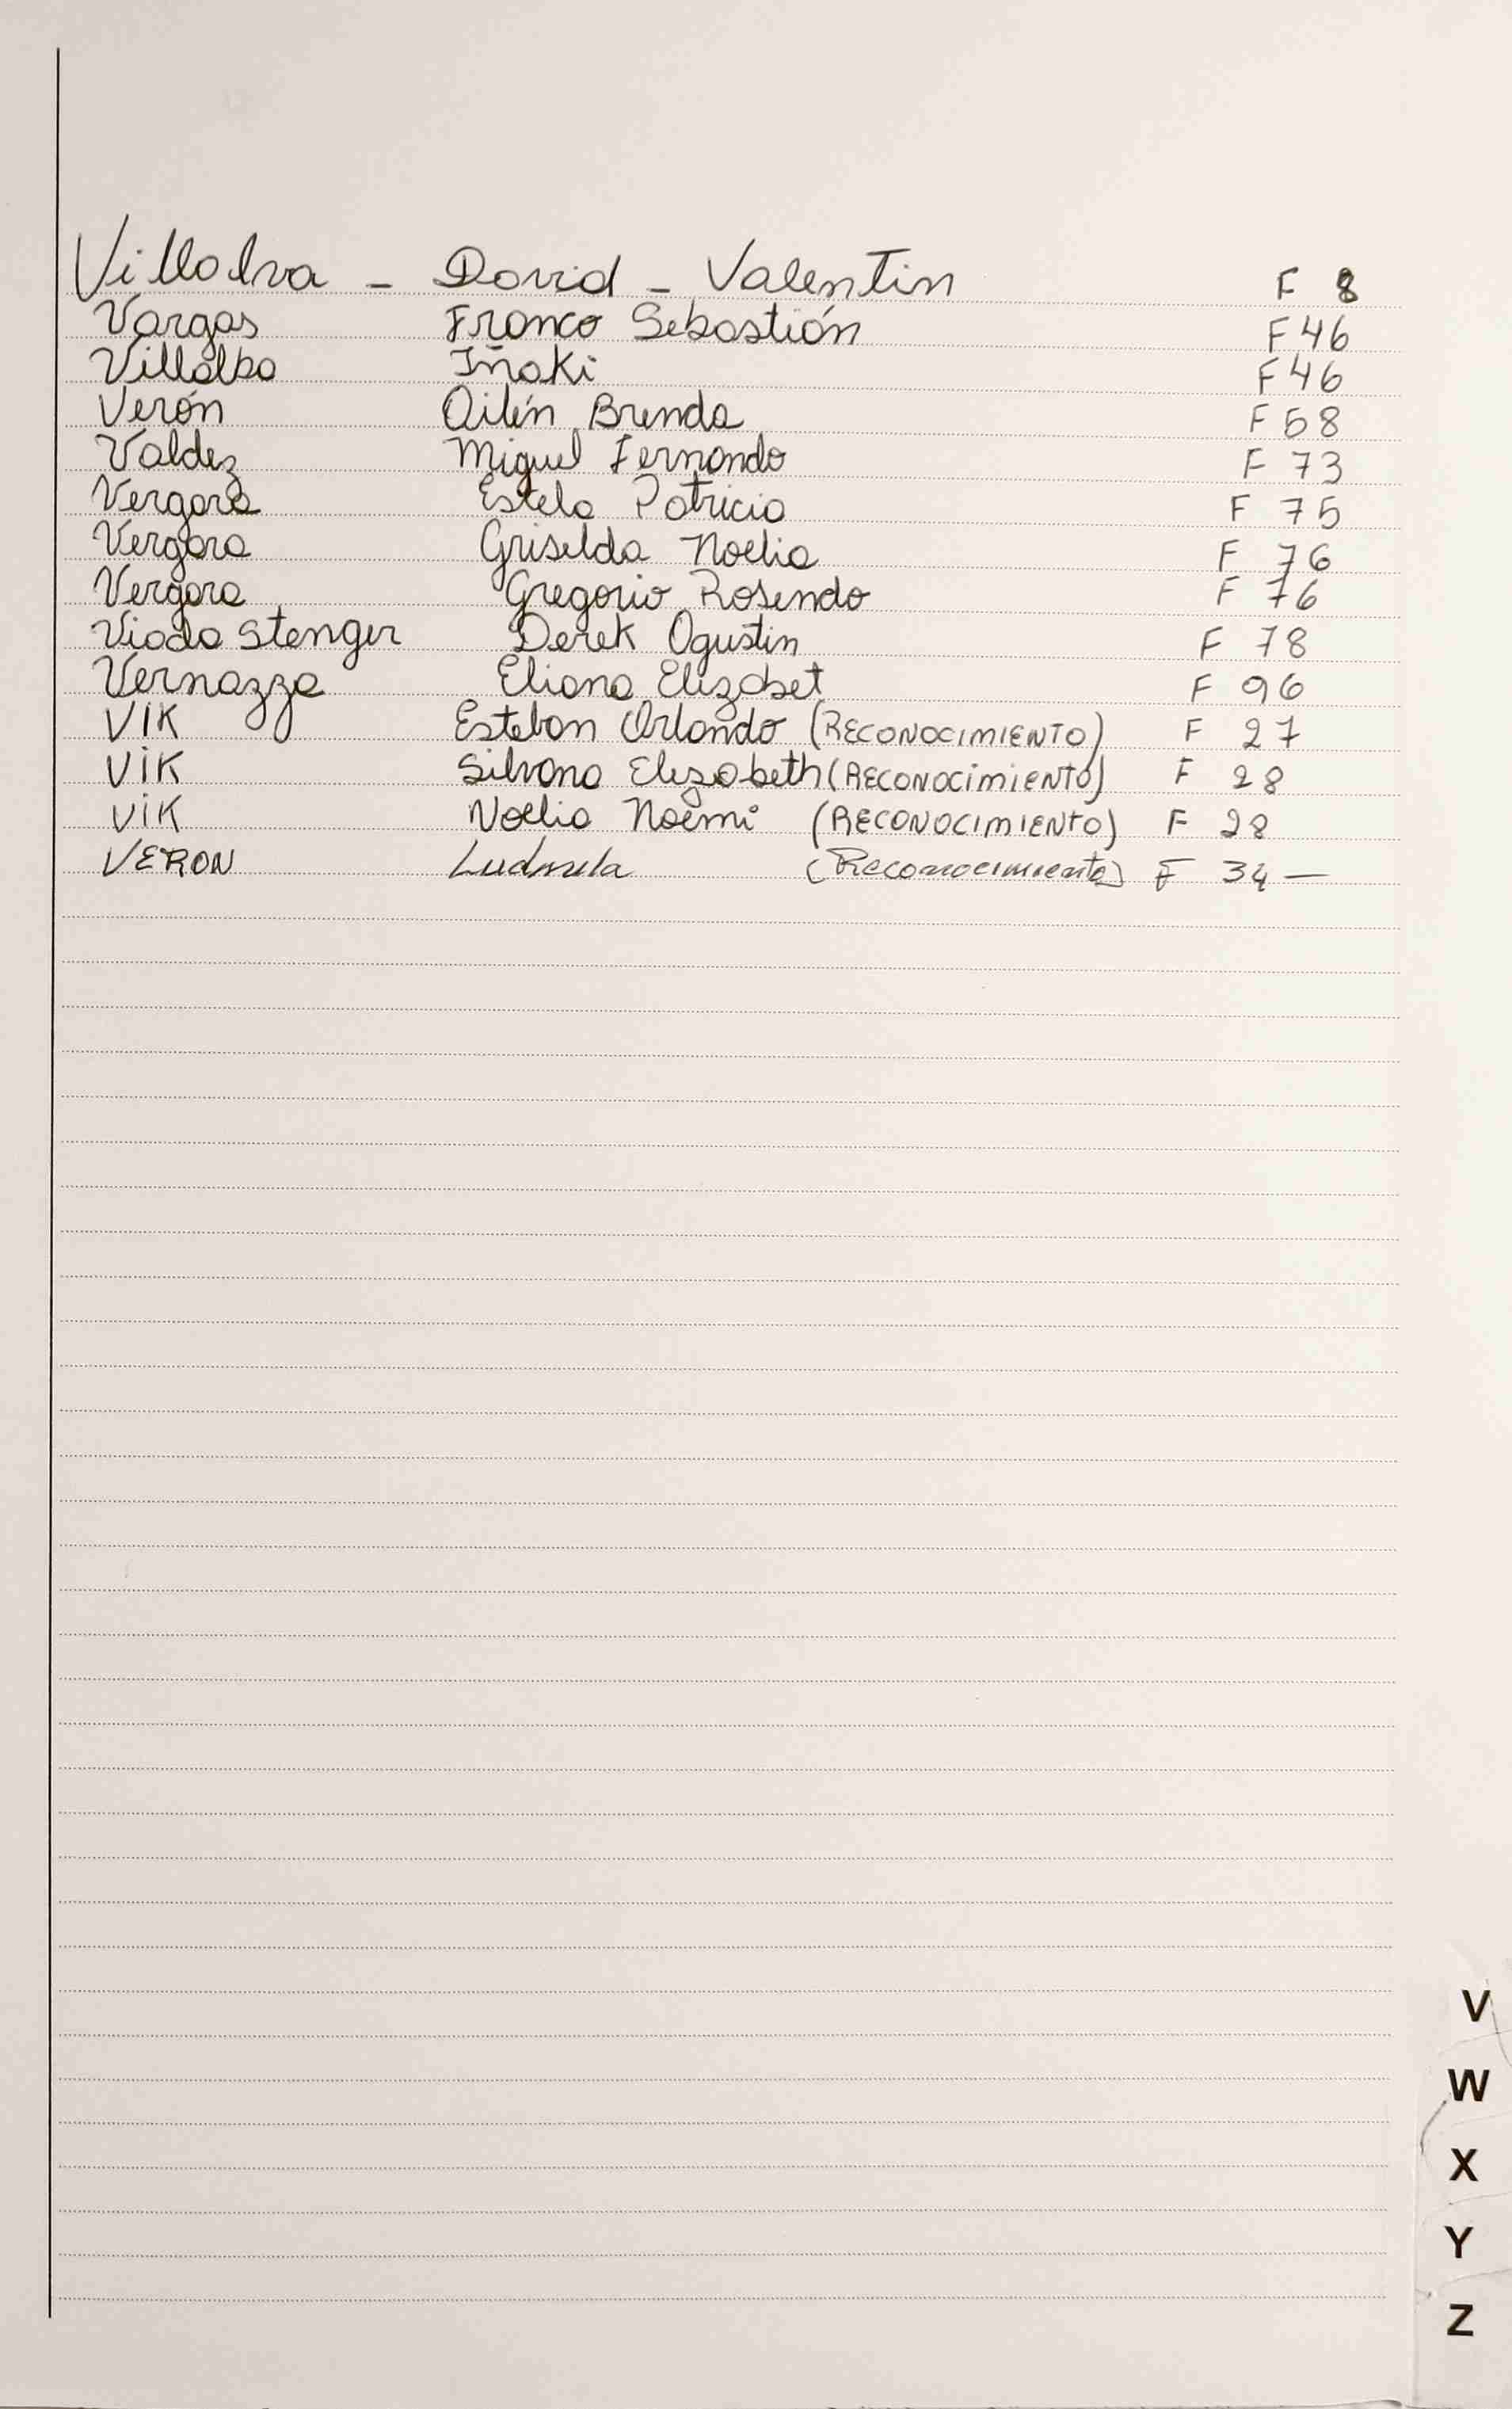 Villalva - David - Valentin F 8
Vargas Franco Sebastián F 46
Villalba Iñaki F 46
Verón Ailén Brenda F 68
Valdez Miguel Fernando F 73
Vergara Estela Patricia F 75
Vergara Griselda Noelia F 76
Vergara Gregorio Rosendo F 76
Viada Stenger Derek Agustin F 78
Vernazza Eliana Elizabet F 96
VIK Esteban Orlando (RECONOCIMIENTO) F 27
VIK Silvana Elizabeth (RECONOCIMIENTO) F 28
VIK Noelia Noemi (RECONOCIMIENTO) F 28
VERON Ludmila (Reconocimiento) F 34 —
V
W
X
Y
Z